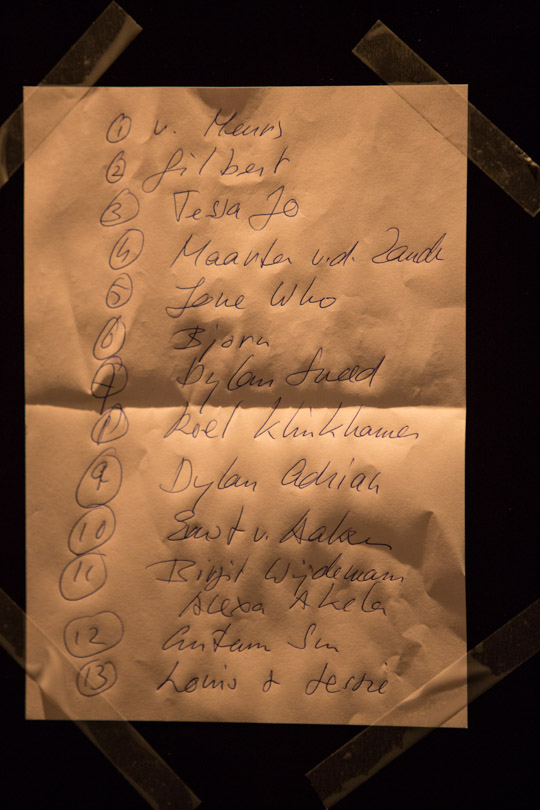 1 v. Meurs
2 Gilbert
3 Tessa Jo
4 Maarten v.d. Zande
5 Jone Who
6 Bjorn
7 Dylan Sneed
8 Roel Klinkhamer
9 Dylan Adrian
10 v.
11 Birgit Wijdemans
Alexa Akela
12 Autumn Sun
13 Louis & Jessie